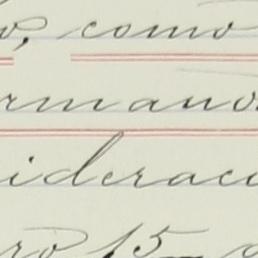 o, como
rmano
iderac
ro 15